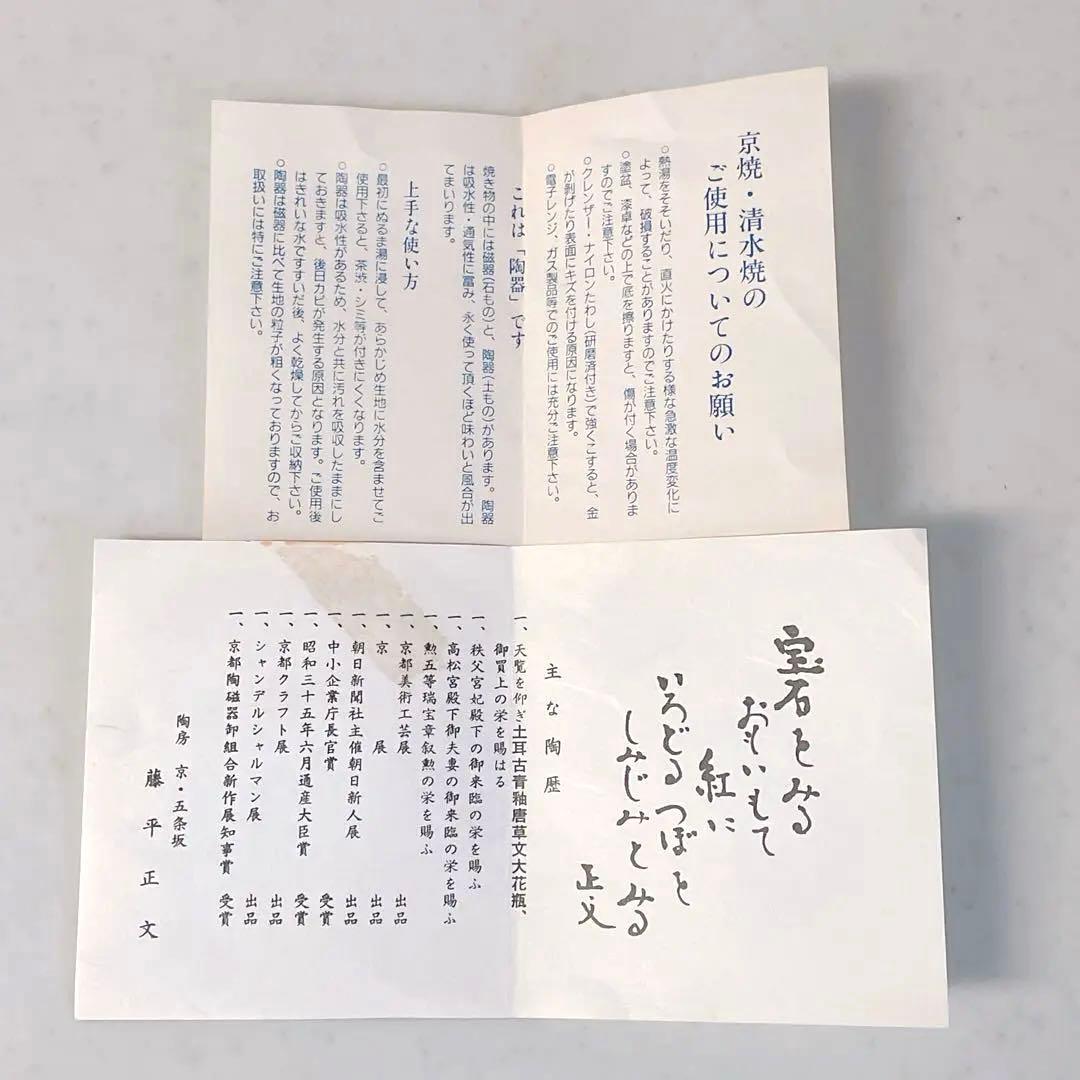 京焼・清水焼の
ご使用についてのお願い
○熱湯をそそいだり、直火にかけたりする様な急激な温度変化に
よって、破損することがありますのでご注意下さい。
○塗盆、漆卓などの上で底を擦りますと、傷が付く場合がありま
すのでご注意下さい。
○クレンザー・ナイロンたわし(研磨済付き)で強くこすると、金
が剥げたり表面にキズを付ける原因になります。
○電子レンジ、ガス製品等でのご使用には充分ご注意下さい。
これは「陶器」です
焼き物の中には磁器(石もの)と、陶器(土もの)があります。陶器
は吸水性・通気性に富み、永く使って頂くほど味わいと風合が出
てまいります。
上手な使い方
○最初にぬるま湯に浸して、あらかじめ生地に水分を含ませてご
使用下さると、茶渋・シミ等が付きにくくなります。
○陶器は吸水性があるため、水分と共に汚れを吸収したままにし
ておきますと、後日カビが発生する原因となります。ご使用後
はきれいな水ですすいだ後、よく乾燥してからご収納下さい。
○陶器は磁器に比べて生地の粒子が粗くなっておりますので、お
取扱いには特にご注意下さい。
宝石をみる
おもいもて
紅に
いろどるつぼを
しみじみとみる
正文
主な陶歴
一、天覧を仰ぎ土耳古青釉唐草文大花瓶、
御買上の栄を賜はる
一、秩父宮妃殿下の御来臨の栄を賜ふ
一、高松宮殿下御夫妻の御来臨の栄を賜ふ
一、勲五等瑞宝章叙勲の栄を賜ふ
一、京都美術工芸展 出品
一、京展 出品
一、朝日新聞社主催朝日新人展 出品
一、中小企業庁長官賞 受賞
一、昭和三十五年六月通産大臣賞 受賞
一、京都クラフト展 出品
一、シャンデルシャルマン展 出品
一、京都陶磁器卸組合新作展知事賞 受賞
陶房 京・五条坂
藤平正文